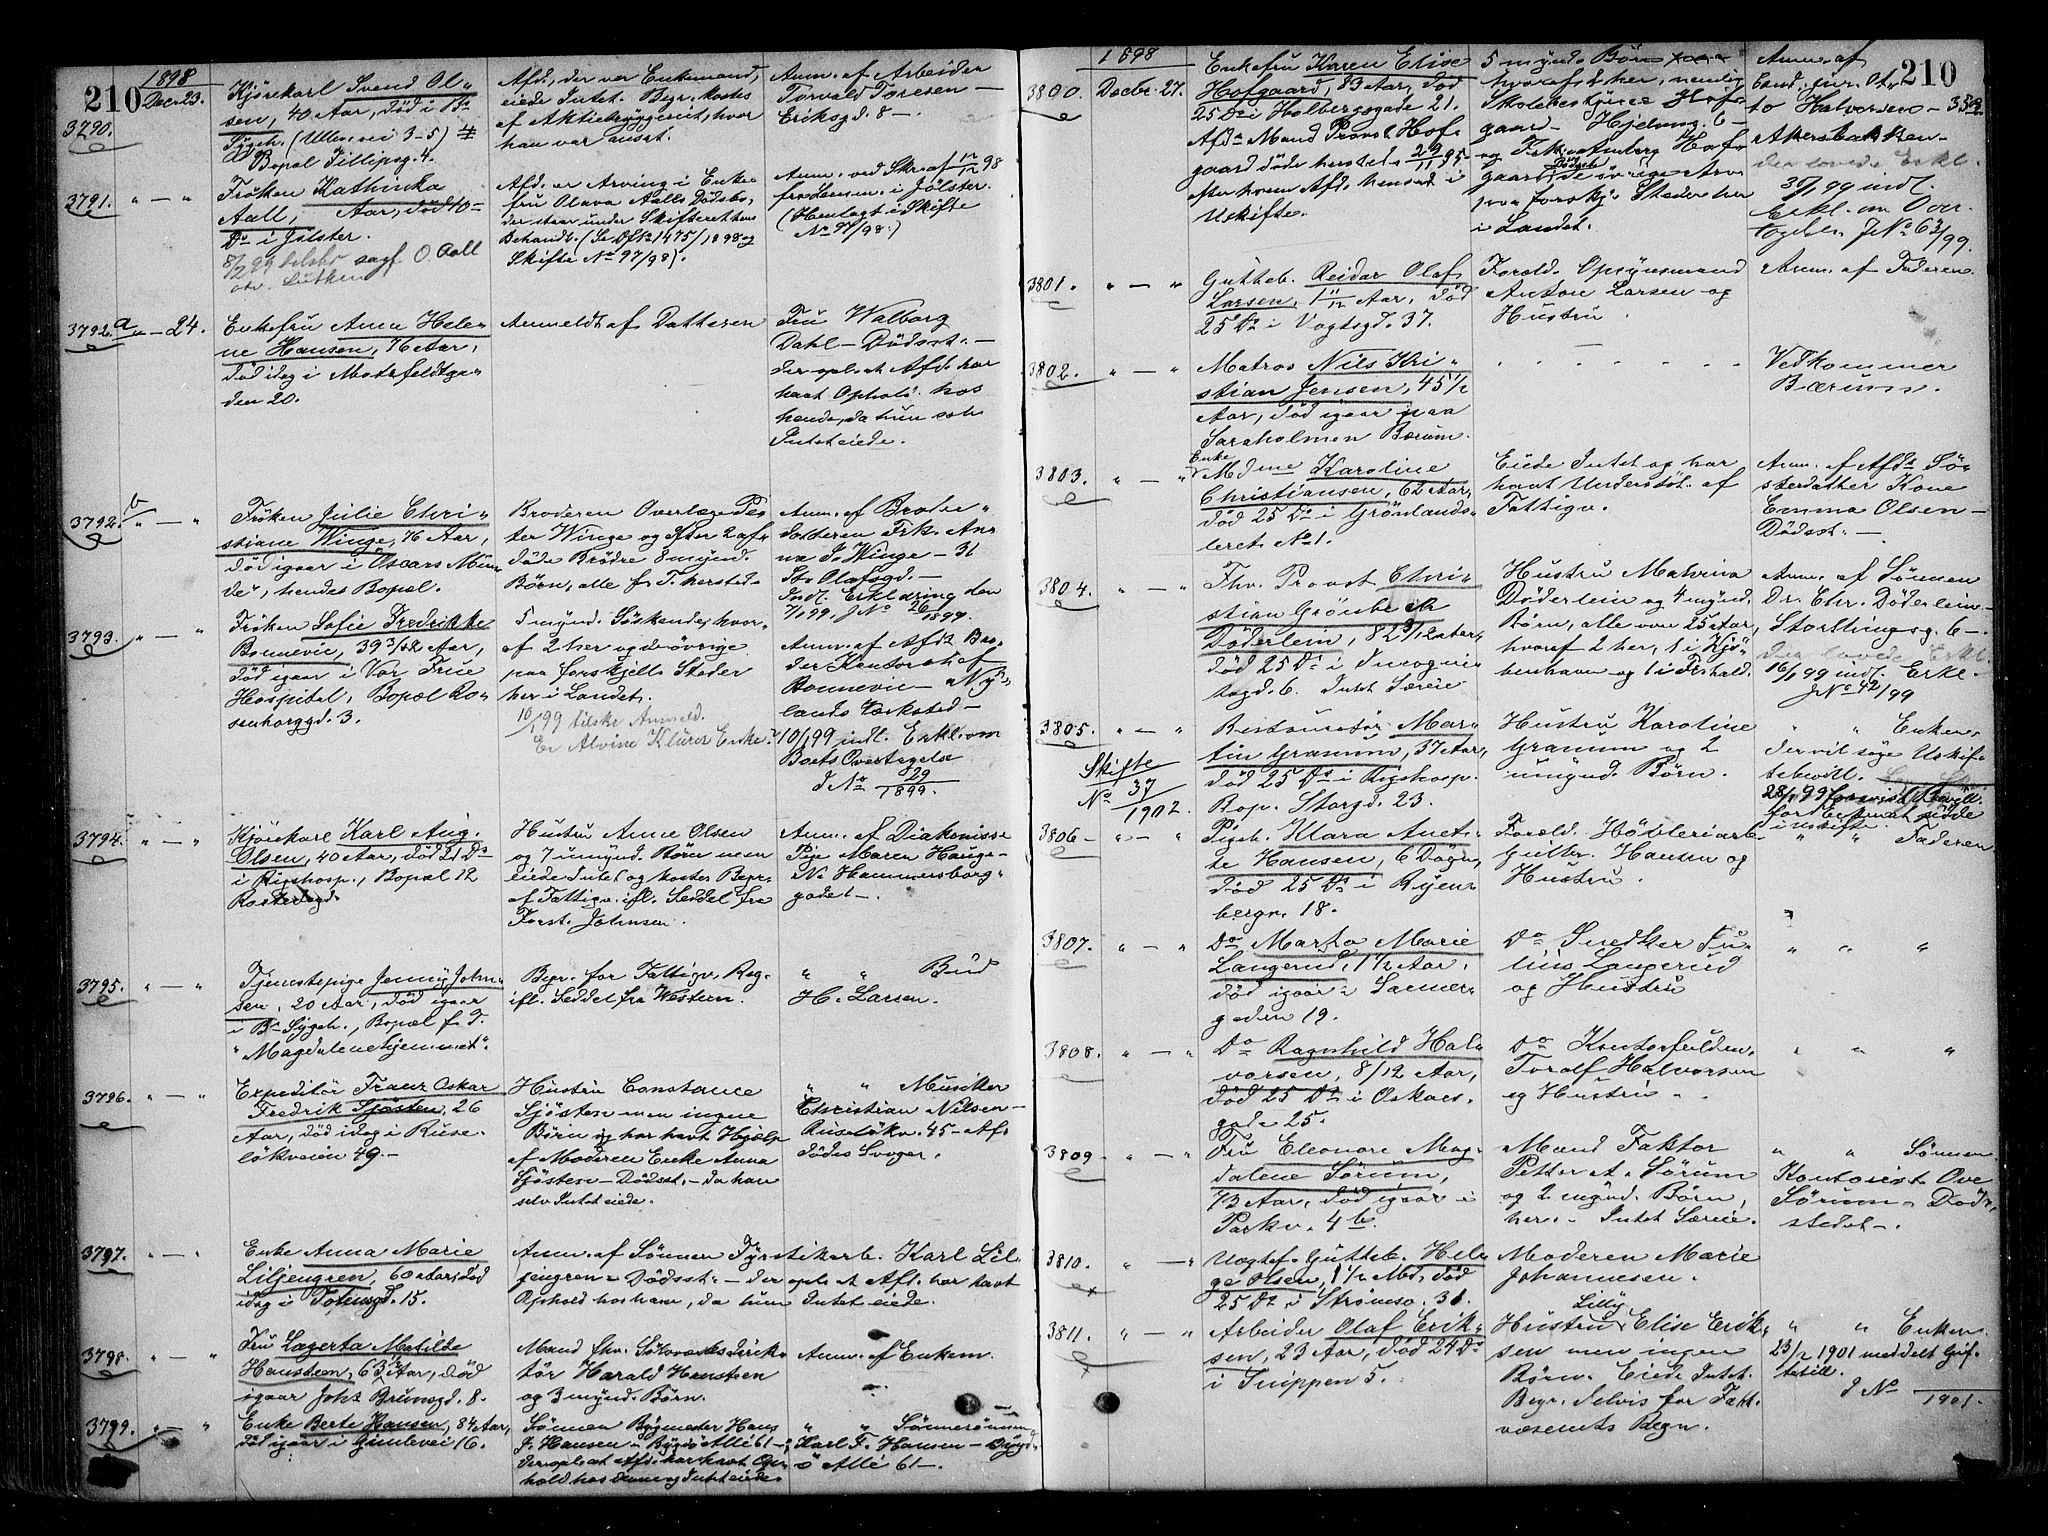 210
1898
Decr. 23.
3790.
Kjörekarl Svend Ol-
sen, 40 Aar, död i Bs
Sygeh. (Ullev. vei 3-5)
Bopæl Fillipsg. 4.
Afd., der var Enkemand,
eiede Intet. Begr. kostes
af Aktiebryggeriet, hvor
han var ansat.
Anm. af Arbeider
Torvald Toresen —
Eriksgd. 8 —.
3791. " — "
Fröken Kathinka
Aall, Aar, död 10
Ds i Jölster.
8/2 99 tilskr. sagf. O. Aall
Afd. er Arving i Enke-
fru Olava Aalls Dödsbo,
der staar under Skifterettens
Behandl. (Se Df No 1475/1898 og
Skifte No 97/98).
Anm. ved Skr. af 17/12 98
fra Lensm. i Jölster.
(Henlagt i Skifte
No 97/98.)
3792.a " — 24.
Enkefru Anna Hele-
ne Hansen, 76 Aar,
död idag i Motzfeldtga-
den 20.
Anmeldt af Datteren
Fru Walborg
Dahl — Dödsst. —
der opl. at Afd. har
havt Ophold hos
hende, da hun selv
Intet eiede.
3792.b " — "
Fröken Julie Chri-
stiane Winge, 76 Aar,
död igaar i "Oscars Min-
de", hendes Bopæl.
Broderen Overlæge Pe-
ter Winge og efter 2 af-
döde Brödre 8 mynd.
Börn, alle f. T. hersteds.
Anm. af Broder-
datteren Frk. An-
na J. Winge — 31
St. Olafsgd. —
Indl. Erklæring den
7/1 99. J No 26/1899.
3793. " — "
Fröken Sofie Fredrikke
Bonnevie, 39 3/12 Aar,
död igaar i Vor Frue
Hospital, Bopæl Ro-
senborggd. 3.
5 mynd. Söskende, hvor-
af 2 her og de övrige
paa forskjell. Steder
her i Landet.
10/1 99 tilskr. Anmeld.
Er Alvine Klürer Enke?
Anm. af Afds Bro-
der Kontorchef
Bonnevie — Ny-
lands Værksted —
10/1 99 indl. Erkl. om
Boets Overtagelse
J No 29/1899.
3794. " — "
Kjörekarl Karl Aug.
Olsen, 40 Aar, död 21 Ds
i Rigshosp., Bopæl 12
Hustru Anne Olsen
og 7 umynd. Börn men
eiede Intet og kostes Begr.
af Fattigv. ifl. Seddel fra
Forst. Johnsen.
Anm. af Diakonisse
Pige Maren Hauge —
No Hammersborg-
gadet —.
3795. " — "
Tjenestepige Jenny John-
sen, 20 Aar, död igaar
i Bs Sygeh., Bopæl f. T.
"Magdalenehjemmet".
Begr. for Fattigv. Reg.
ifl. Seddel fra Western.
" " Bud
H. Larsen.
3796. " — "
Expeditör Franz Oskar
Fredrik Sjösten, 26
Aar, död idag i Ruse-
lökveien 49 —
Hustru Constance
Sjösten men ingen
Börn og har havt Hjælp
af Moderen Enke Anna
Sjösten — Dödsst. — da han
selv Intet eiede.
" " Musiker
Christian Nilsen —
Ruselökv. 45 — Af-
dödes Svoger.
3797. " — "
Enke Anna Marie
Liljengren, 60 Aar, död
idag i Tomtegd. 15.
Anm. af Sönnen Fyrstikarb. Karl Lil-
jengren — Dödsst. — der opl. at Afd. har havt
Ophold hos ham, da hun Intet eiede.
3798. " — "
Fru Lagerta Matilde
Hansteen, 63 1/2 Aar, död
igaar Johs Brunsgd. 8.
Mand fhv. Direk-
tör Harald Hansteen
og 3 mynd. Börn.
Anm. af Enkem.
3799. " — "
Enke Berte Hansen, 84 Aar,
död igaar i Gimlevei 16.
Sönnen Bygmester Hans
J. Hansen — Bygdö Allé 61 —
der opl. at Afd. har havt Op-
hold hos denne og Intet eiede
" " Sönnesönnen
Karl F. Hansen — Bygd-
ö Allé 61 —.
210
1898
3800. Decbr. 27.
Enkefru Karen Elise
Hofgaard, 83 Aar, död
25 Ds i Holbergsgade 21.
Afds Mand Provst Hof-
gaard döde hersteds 29/11 95
efter hvem Afd. hensad i
Uskifte.
5 mynd. Börn
hvoraf 2 her, nemlig
Skolebestyrer Hof-
gaard — Hjelmsg. 6 —
og Frk. Hof-
gaard, Dödsst., de övrige Arv.
paa forskj. Steder her
i Landet.
Anm. af
Eiend. för. Ot-
to Halvorsen — 33a
Akersbakken —
der lovede Erkl.
30/1 99 indl.
Erkl. om Over-
tagelse J No 63/99.
3801. " — "
Gutteb. Reidar Olaf
Larsen, 1 11/12 Aar, död
25 Ds i Vogtsgd. 37.
Foræld. Opsynsmand
Anton Larsen og
Hustru.
Anm. af Faderen.
3802. " — "
Matros Nils Kri-
stian Jensen, 45 1/2
Aar, död igaar paa
Saraholmen Bærum.
Vedkommer
Bærum.
3803. " — "
Enke
Mdme Karoline
Christiansen, 62 Aar,
död 25 Ds i Grönlands-
leret No 1.
Eiede Intet og har
havt Understöt. af
Fattigv.
Anm. af Afds Sö-
sterdatter Kone
Emma Olsen —
Dödsst. —
3804. " — "
Fhv. Provst Chri-
stian Grönbech
Döderlein, 82 3/12 Aar,
död 25 Ds i Incogni-
togd. 6. Intet Særeie
Hustru Malvina
Döderlein og 4 mynd.
Börn, alle over 25 Aar,
hvoraf 2 her, 1 i Kjö-
benhavn og 1 i Frhald.
Anm. af Sönnen
Dr. Chr. Döderlein —
Storthingsg. 6 —.
der lovede Erkl.
16/1 99 indl. Erkl.
J No 42/99
3805. " — "
Skifte
No 37/1902.
Restauratör Mar-
tin Granum, 37 Aar,
död 25 Ds i Rigshosp.
Bop. Storgd. 23.
Hustru Karoline
Granum og 2
umynd. Börn.
" " Enken,
der vil söge Uskif-
tebevill.
28/1 99 forevist Bevill.
for bemeldte at sidde
i uskifte.
3806 " — "
Pigeb. Klara Anet-
te Hansen, 6 Dögn,
död 25 Ds i Ryens-
bergn. 18.
Foræld. Hövleriarb.
Guttor. Hansen og
Hustru.
" " Faderen
3807. " — "
Do Marta Marie
Langerud, 1 1/2 Aar,
död igaar i Sarner-
gaden 19.
Do Snedker Ju-
lius Langerud
og Hustru
" " "
3808. " — "
Do Ragnhild Hal-
vorsen, 8/12 Aar,
död 25 Ds i Oskars-
gade 25.
Do Kontorfuldm.
Toralf Halvorsen
og Hustru.
" " "
3809 " — "
Fru Eleonore Mag-
dalene Sörum,
73 Aar, död igaar i
Parkv. 4 b.
Mand Faktor
Petter A. Sörum
og 2 mynd. Börn,
her. — Intet Særeie.
" " Sönnen
Kontorist Ove
Sörum — Död-
stedet —.
3810. " — "
Uægtef. Gutteb. Hel-
ge Olsen, 1 1/2 Md., död
25 Ds i Strömsv. 31.
Moderen Marie
Johannesen.
3811. " — "
Arbeider Olaf Erik-
sen, 23 Aar, död 24 Ds
i Snippen 5.
Lilly
Hustru Elise Erik-
sen men ingen
Börn. Eiede Intet.
Begr. Selvis for Fatt-
væsenets Regn.
" " Enken
23/2 1901 meddelt Gif-
tetill.
J No /1901.